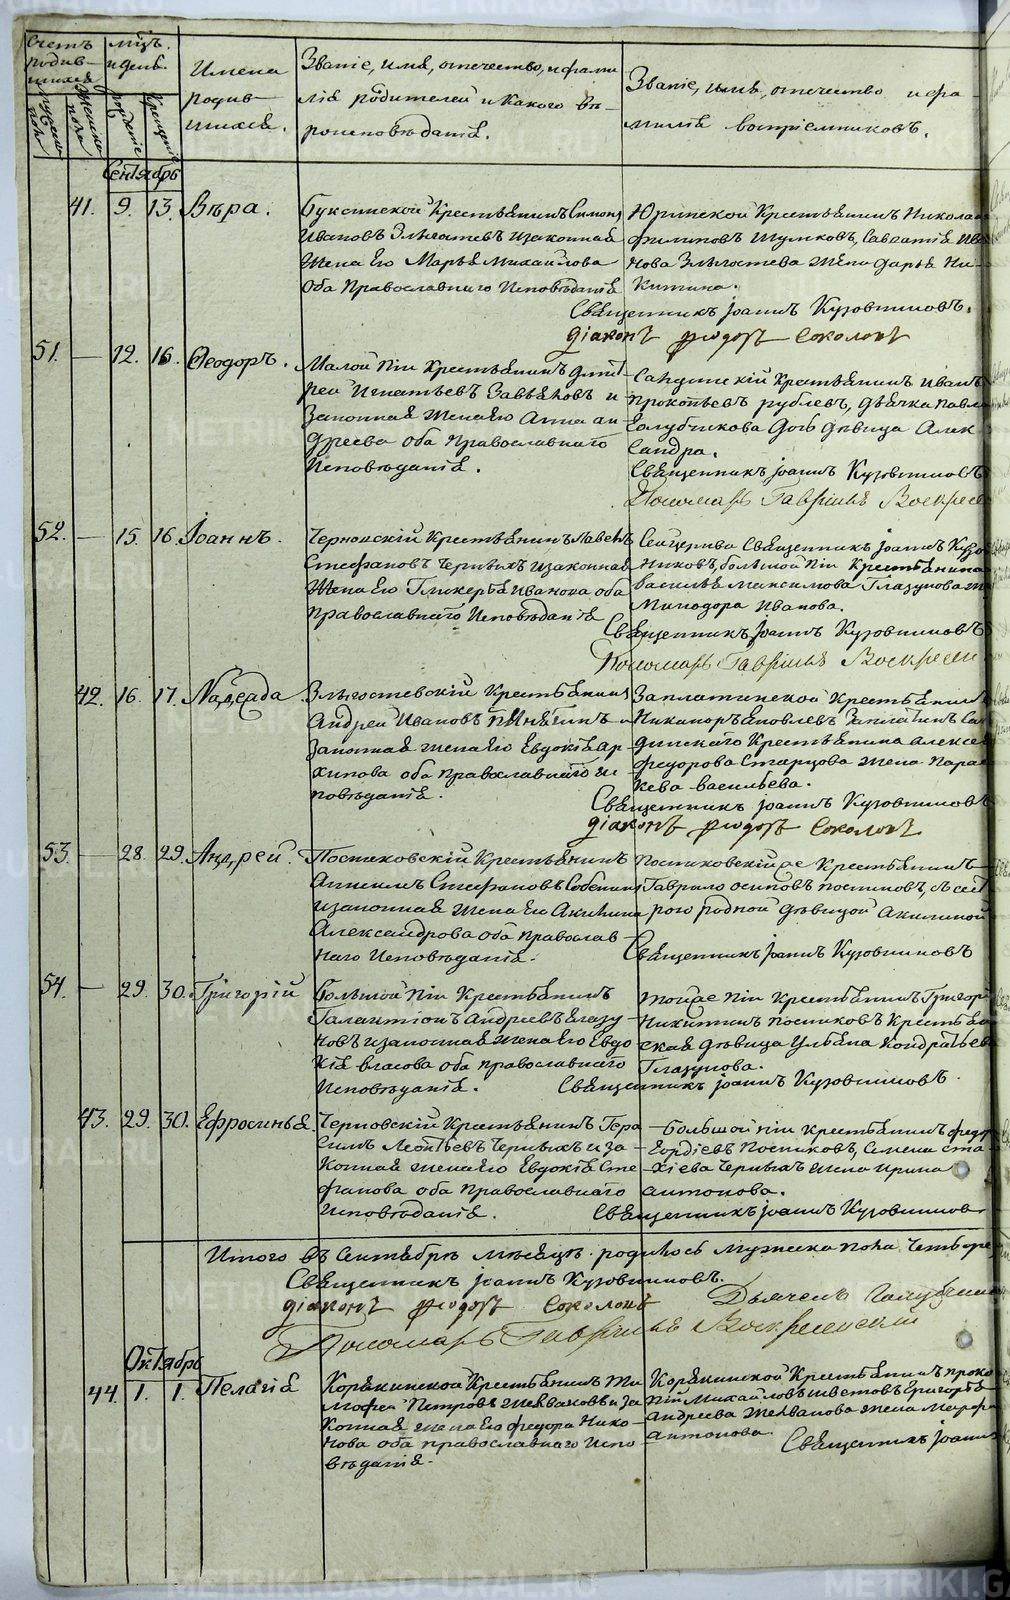 Счетъ родив-шихся
мужеска пола
женска пола
мѣц. и день
рожденiе
крещенiе
Имена родив-шихся.
Званiе, имя, отечество, и фами-
лiя родителей и какого вѣ-
роисповѣданiя.
Званiе, имя, отечество и фа-
милiя воспрiемниковъ.
Сентябрь
41. 9. 13. Вѣра.
Крестьянинъ Симонъ
Ивановъ и законная
жена его Марья Михаилова
оба православнаго исповѣданiя
Крестьянинъ Николай
Филиповъ Шумковъ, Савватiя Ива
нова жена Дарья Ни-
китина.
Священникъ Iоаннъ Кузовниковъ.
Дiаконъ Ѳеодоръ Соколовъ
51. — 12. 16. Ѳеодоръ.
Малой Пiи Крестьянинъ Дмит
рей Игнатьевъ Завьяловъ и
законная жена его Анна Ан
дреева оба православнаго
исповѣданiя.
Крестьянинъ Иванъ
Прокопьевъ Рублевъ, дьячка Павла
Голубчикова дочь дѣвица Алек
сандра.
Священникъ Iоаннъ Кузовниковъ
Пономарь Гаврiилъ Воскресе
52. — 15. 16. Iоаннъ.
Черновскiй Крестьянинъ
Стефановъ Черныхъ и законная
жена его Гликерья Иванова оба
православнаго исповѣданiя
Священникъ Iоаннъ Кузов
никовъ, большой Пiи Крестьянина
Василья Максимова Глазунова же
Минодора Иванова.
Священникъ Iоаннъ Кузовниковъ
Пономарь Гаврiилъ Воскресен
42. 16. 17. Надежда
Злыгостевскiй Крестьянинъ
Андрей Ивановъ и
законная жена его Евдокiя Ар-
хипова оба православнаго ис-
повѣданiя.
Заплатинской Крестьянинъ
Никаноръ Яковлевъ Заплатинъ
Крестьянина Алексея
Федорова Старцова жена Парас
кева Васильева.
Священникъ Iоаннъ Кузовниковъ
Дiаконъ Ѳеодоръ Соколовъ
53. — 28. 29. Андрей.
Посниковскiй Крестьянинъ
Стефановъ Собенинъ
и законная жена его Акилина
Александрова оба православ-
наго исповѣданiя.
Посниковскiй же Крестьянинъ
Гаврило Осиповъ Посниковъ, съ сест
рою родной дѣвицой Акилиной
Священникъ Iоаннъ Кузовниковъ
54. — 29. 30. Григорiй
Большой Пiи Крестьянинъ
Галактiонъ Андреевъ Глазу-
новъ и законная жена его Евдо
кiя Власова оба православнаго
исповѣданiя.
той же Пiи Крестьянинъ Григорi
Никитинъ Посниковъ Крестьян
ская дѣвица Ульяна Кондратьева
Глазунова.
Священникъ Iоаннъ Кузовниковъ.
43. 29. 30. Ефросинья.
Черновскiй Крестьянинъ Гера
симъ Леонтьевъ Черныхъ и за
конная жена его Евдокiя Сте
фанова оба православнаго
исповѣданiя.
Большой Пiи Крестьянинъ Федор
Гордiевъ Посниковъ, Семена Ста-
хiева Черныхъ жена Ирина
Антонова.
Священникъ Iоаннъ Кузовников
Итого въ Сентябрѣ мѣсяцѣ родилось мужеска пола четыре
Священникъ Iоаннъ Кузовниковъ.
Дiаконъ Ѳеодоръ Соколовъ Дьячекъ
Пономарь Гаврiилъ Воскресенскiй
Октябрь
44. 1. 1. Пелагiя
Корякинской Крестьянинъ Ти
мофей Петровъ и за
конная жена его Федора Нико-
нова оба православнаго испо-
вѣданiя.
Корякинской Крестьянинъ Проко
пiй Михайловъ Шветовъ, Григорья
Андреева жена Марфа
Антонова.
Священникъ Iоаннъ
METRIKI.GASO-URAL.RU